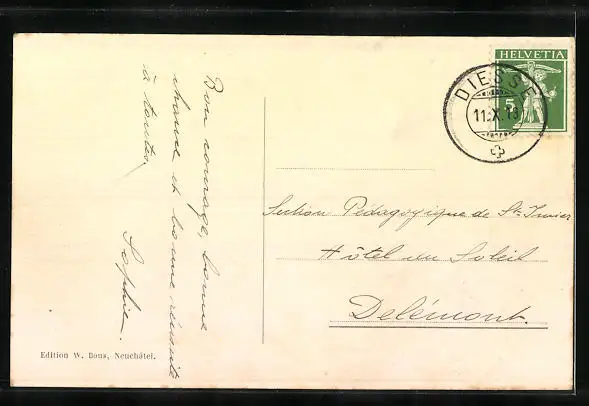 Bon courage, bonne
chance et bonne réussite
à toutes,
Sophie.
Edition W. Bous, Neuchâtel.
HELVETIA
5
DIESSE
11.X.13
Section Pédagogique de St-Imier
Hôtel du Soleil
Delémont.